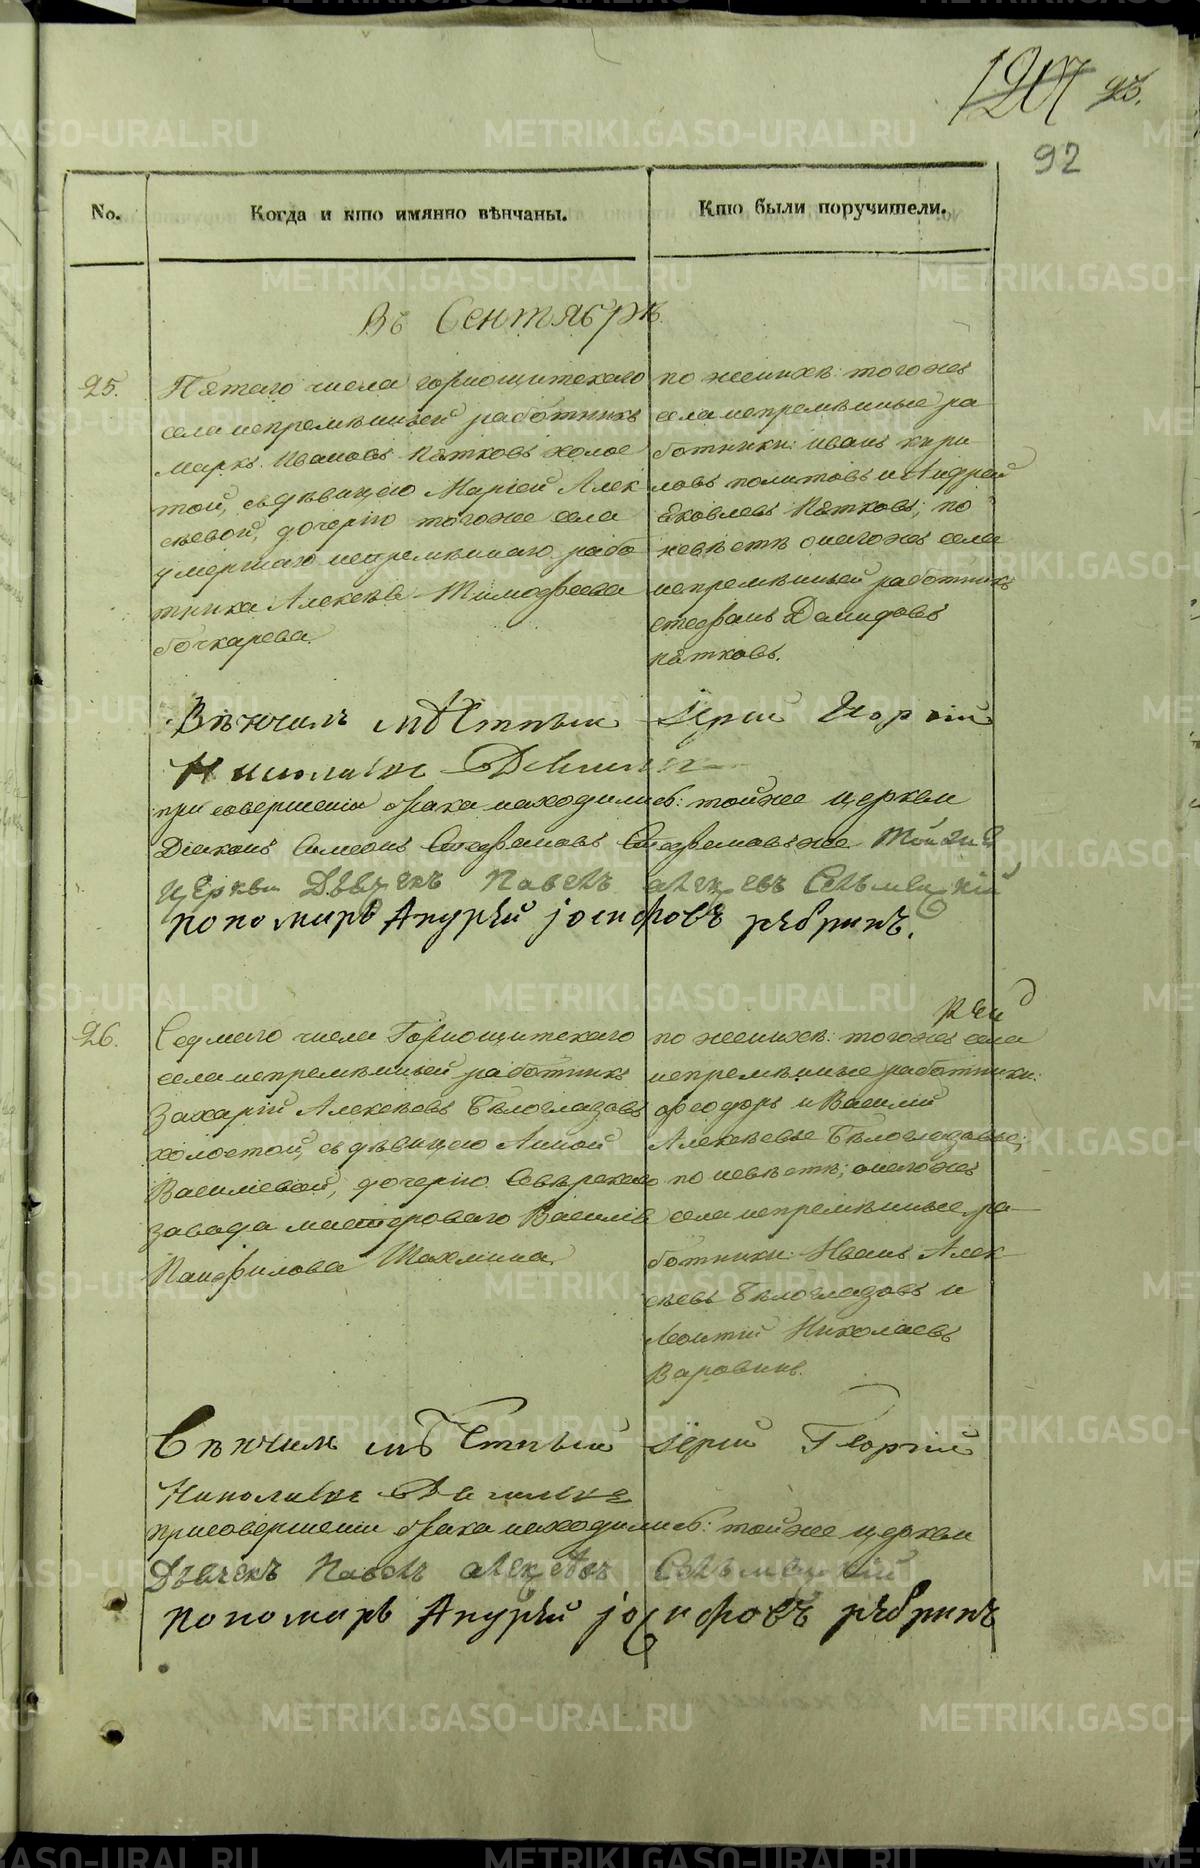 93.
92
No.
Когда и кто имянно вѣнчаны.
Кто были поручители.
Въ Сентябрѣ
25.
Пятаго числа горнощитскаго
села непремѣнный работникъ
Маркъ Ивановъ Пятковъ холос
той, съ дѣвицею Маріей Алек
сѣевой, дочерію тогоже села
умершаго непремѣннаго рабо
тника Алексѣя Тимофеева
бочкарева.
по женихѣ: тогожъ
села непремѣнные ра
ботники: иванъ кири
ловъ политовъ и Андрей
Яковлевъ Пятковъ; по
невѣстѣ онагожъ села
непремѣнный работникъ
стефанъ Демидовъ
пятковъ.
Вѣнчалъ мѣстный іерей Георгій
Николаевъ
при совершеніи брака находились: тойже церкви
Діаконъ Симеонъ Стефановъ Стефановъ же тойже
церкви Дьячекъ Павелъ алексѣевъ Сельменскій
пономарь Андрей іосифовъ рѣбринъ.
26.
Седмаго числа Горнощитскаго
села непремѣнный работникъ
Захарій Алексѣевъ Бѣлоглазовъ
холостой, съ дѣвицею Анной
Васильевой, дочерію Сѣверскаго
завода мастероваго Василія
Панфилова Шахмина.
по женихѣ: тогожъ села
непремѣнные работники:
феодоръ и Василій
Алексѣевы Бѣлоглазовы;
по невѣстѣ; онагожъ
села непремѣнные ра-
ботники: Иванъ Алек
сѣевъ Бѣлоглазовъ и
Леонтій Николаевъ
Варовинъ.
Вѣнчалъ мѣстный іерей Георгій
Николаевъ
присовершеніи брака находились: тойже церкви
Дьячекъ Павелъ алексѣевъ Сельменскій
пономарь Андрей іосифовъ рѣбринъ
METRIKI.GASO-URAL.RU